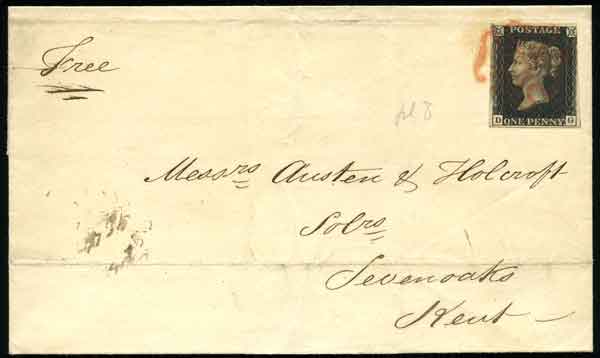 Free
POSTAGE
D ONE PENNY G
pl 8
Messrs Austen & Holcroft
Solrs
Sevenoaks
Kent